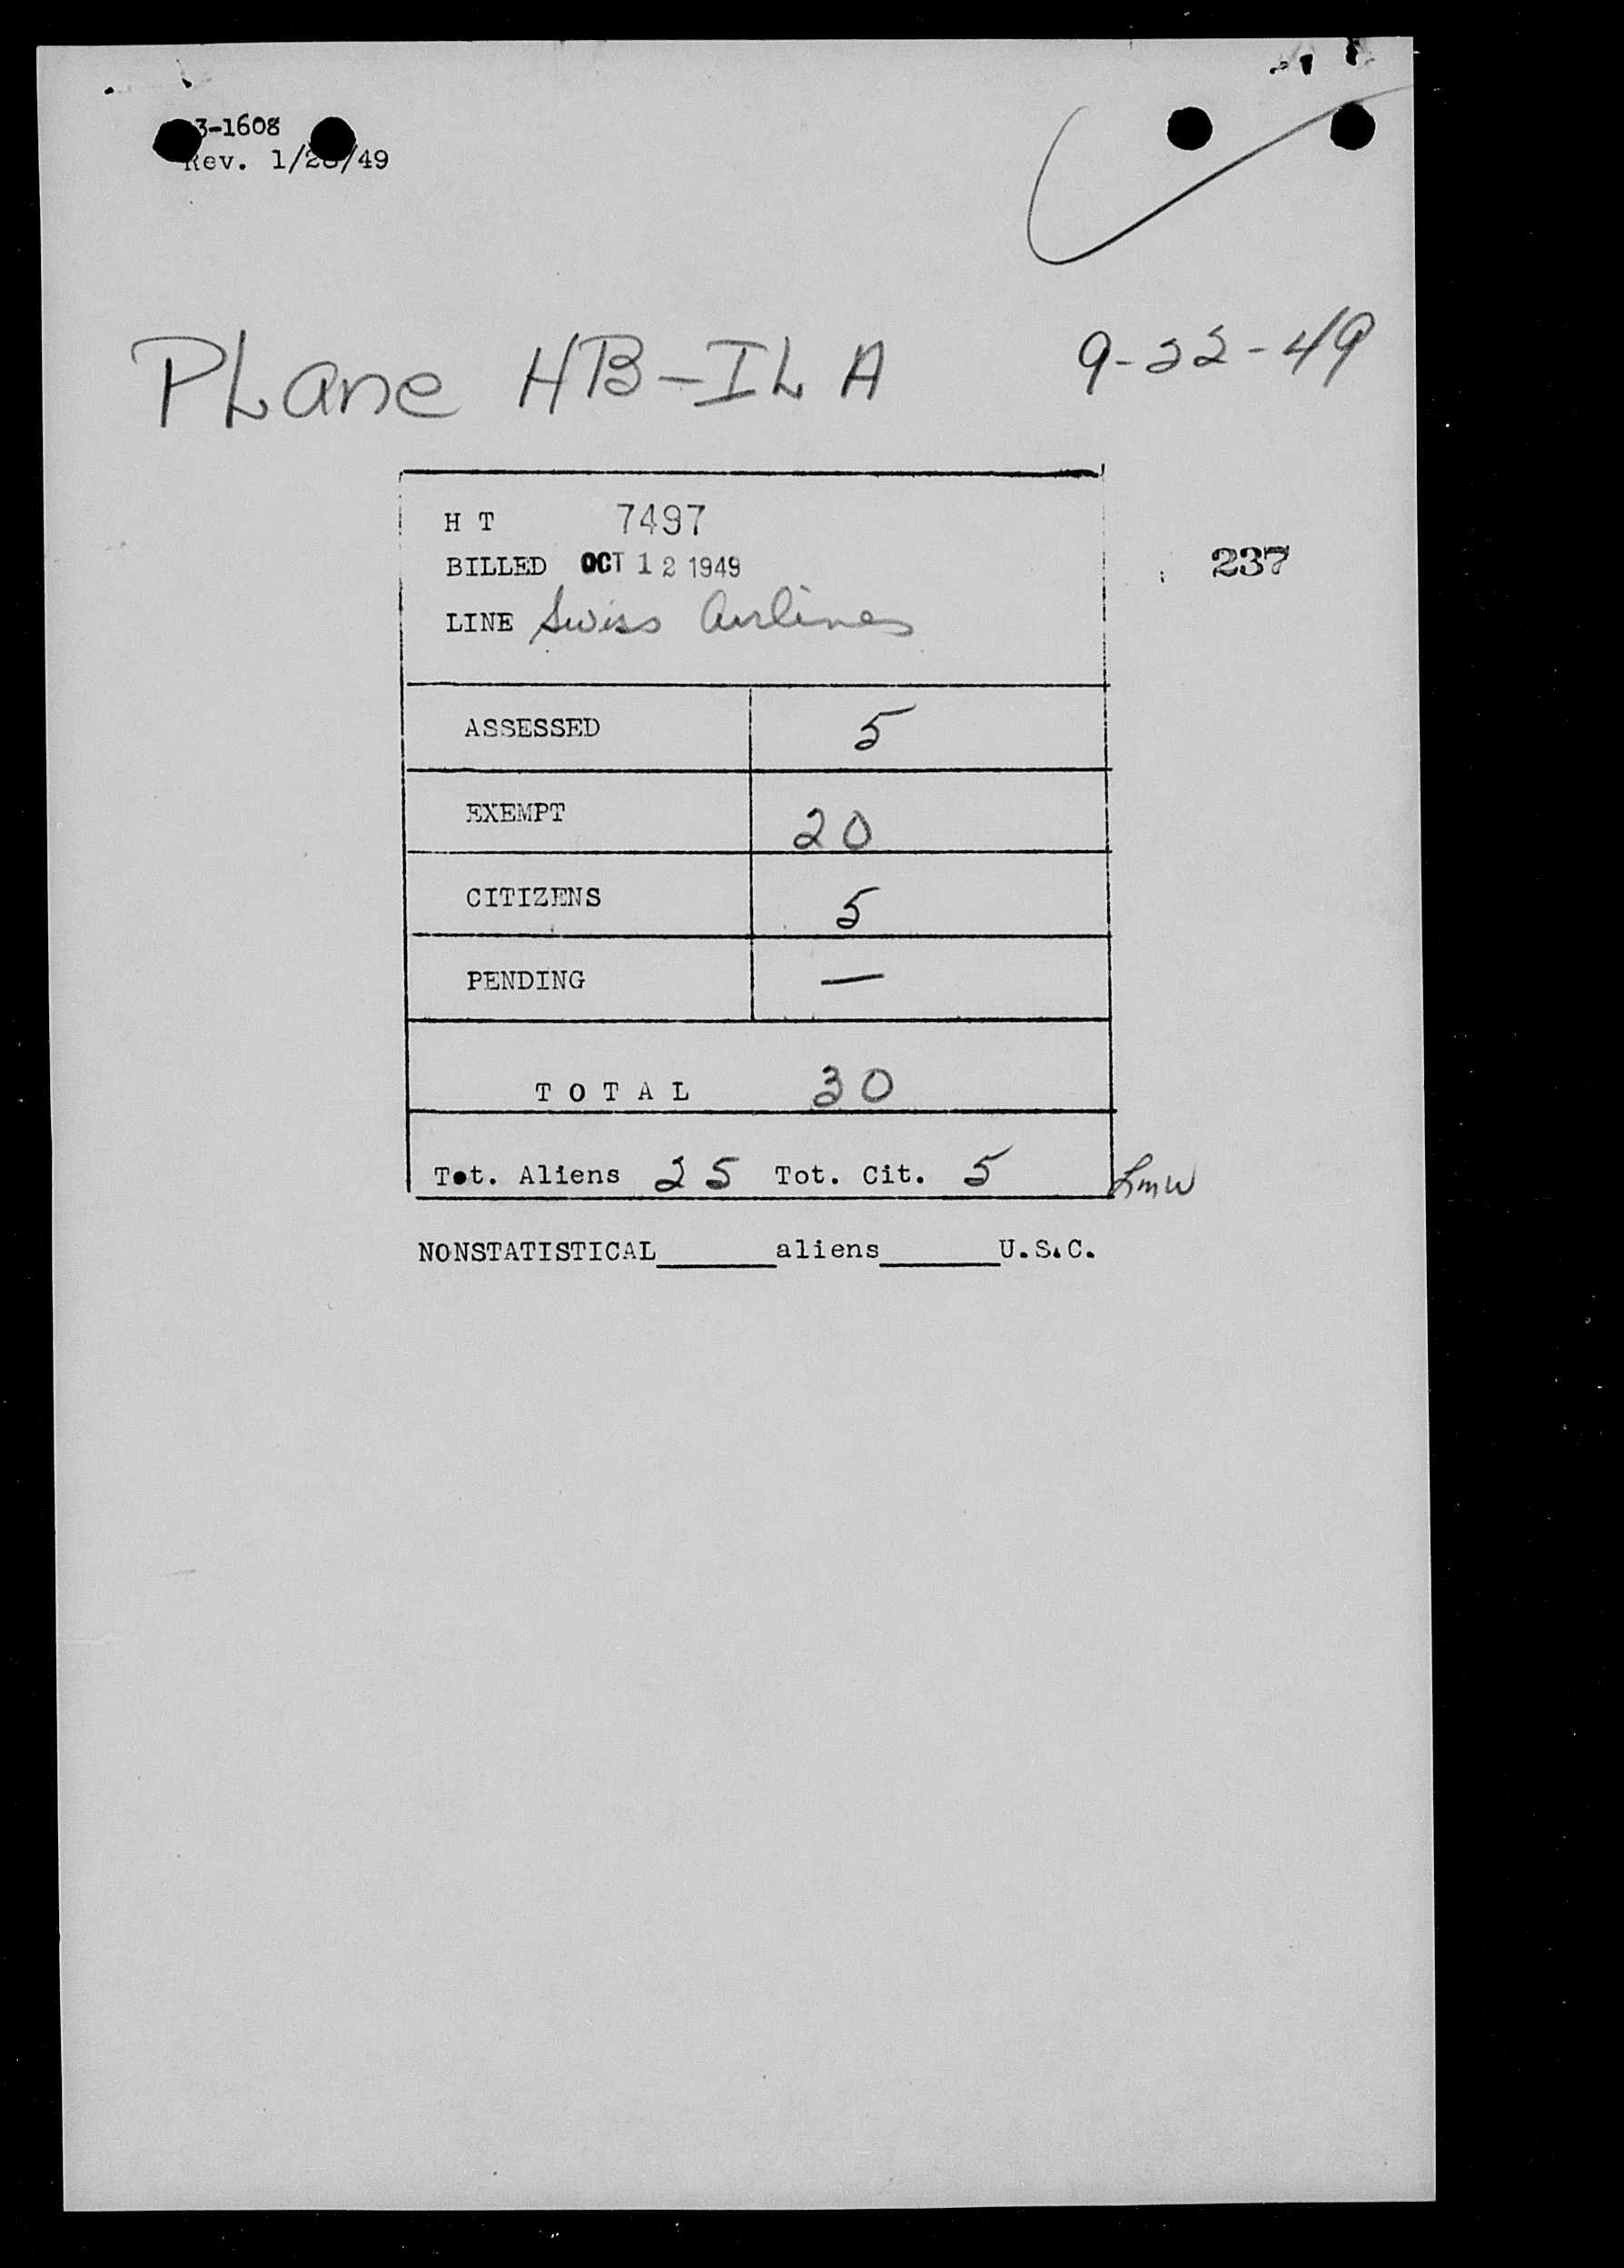 3-1608
Rev. 1/28/49
PLane HB-ILA 9-22-49
H T 7497
BILLED OCT 12 1949
237
LINE Swiss Airlines
ASSESSED 5
EXEMPT 20
CITIZENS 5
PENDING —
TOTAL 30
Tot. Aliens 25 Tot. Cit. 5
NONSTATISTICAL______aliens______U.S.C.